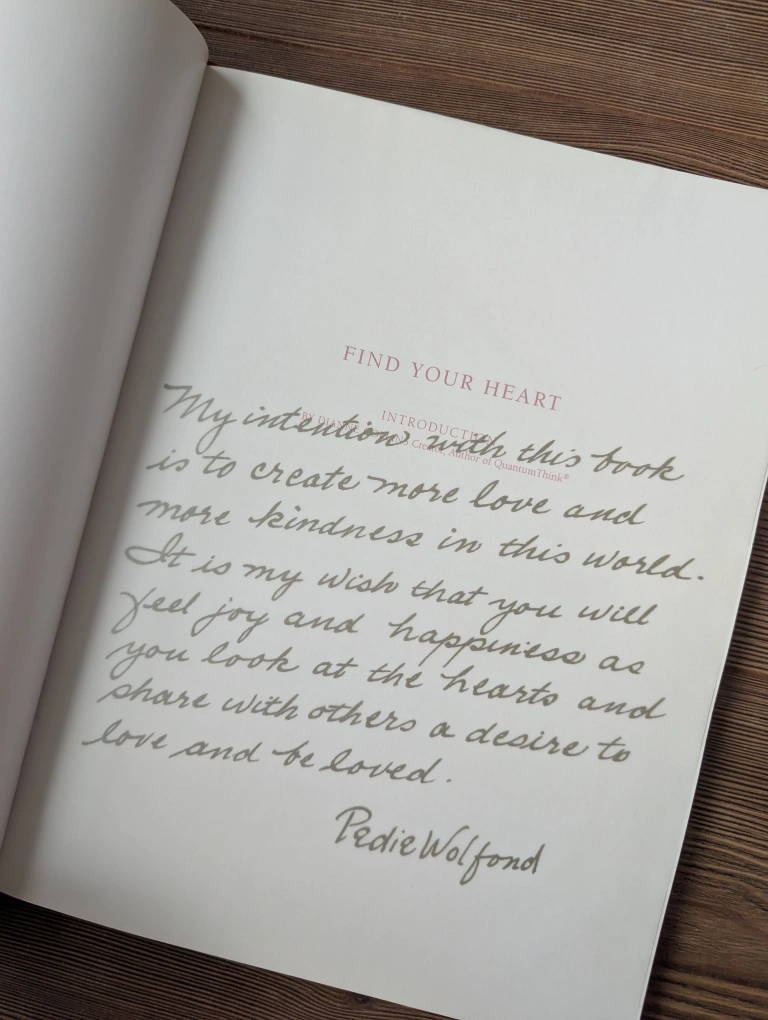 FIND YOUR HEART
INTRODUCTION
BY DIANNE Creator, Author of QuantumThink®
My intention with this book
is to create more love and
more kindness in this world.
It is my wish that you will
feel joy and happiness as
you look at the hearts and
share with others a desire to
love and be loved.
Pedie Wolfond